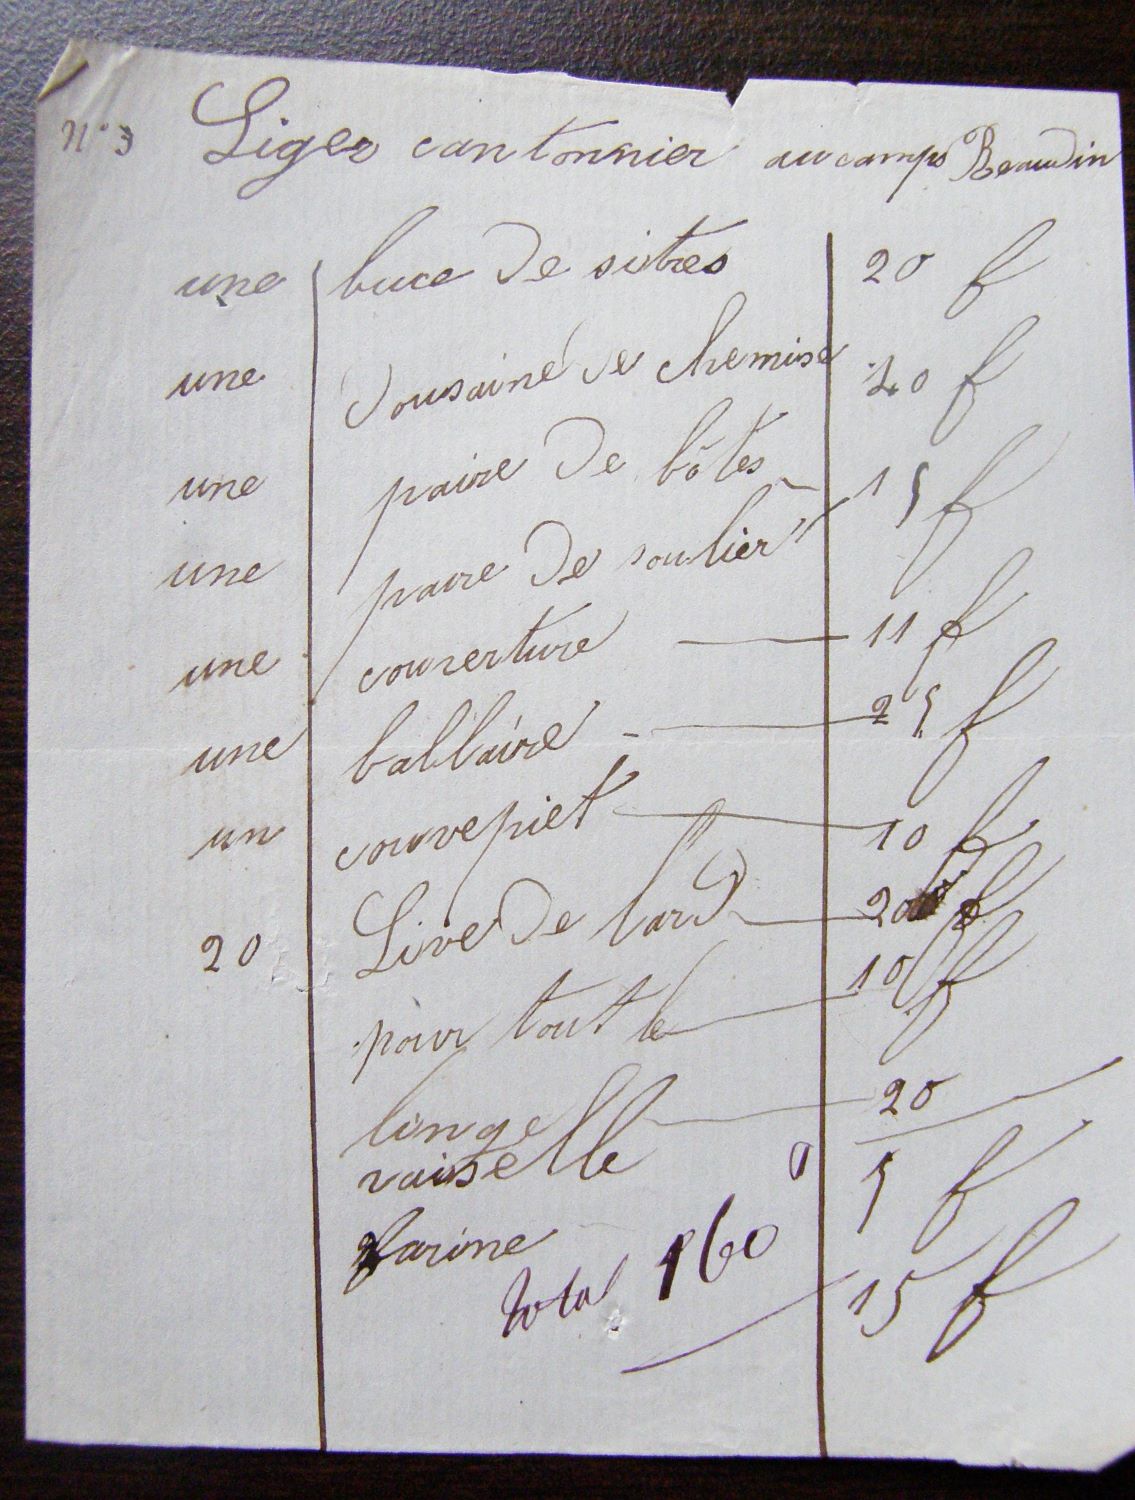 N° 3 Liger cantonnier au camps Beaudin
une buce de sitres 20 f
une dousaine de chemise 20 f
une paire de bôtes 15 f
une paire de soulier 11 f
une couverture 25 f
une ballaire 10 f
un couvepiet 20 f
20 Live de lard 10 f
pour tout le
linge 20
vaiselle 5 f
farine 15 f
total 160